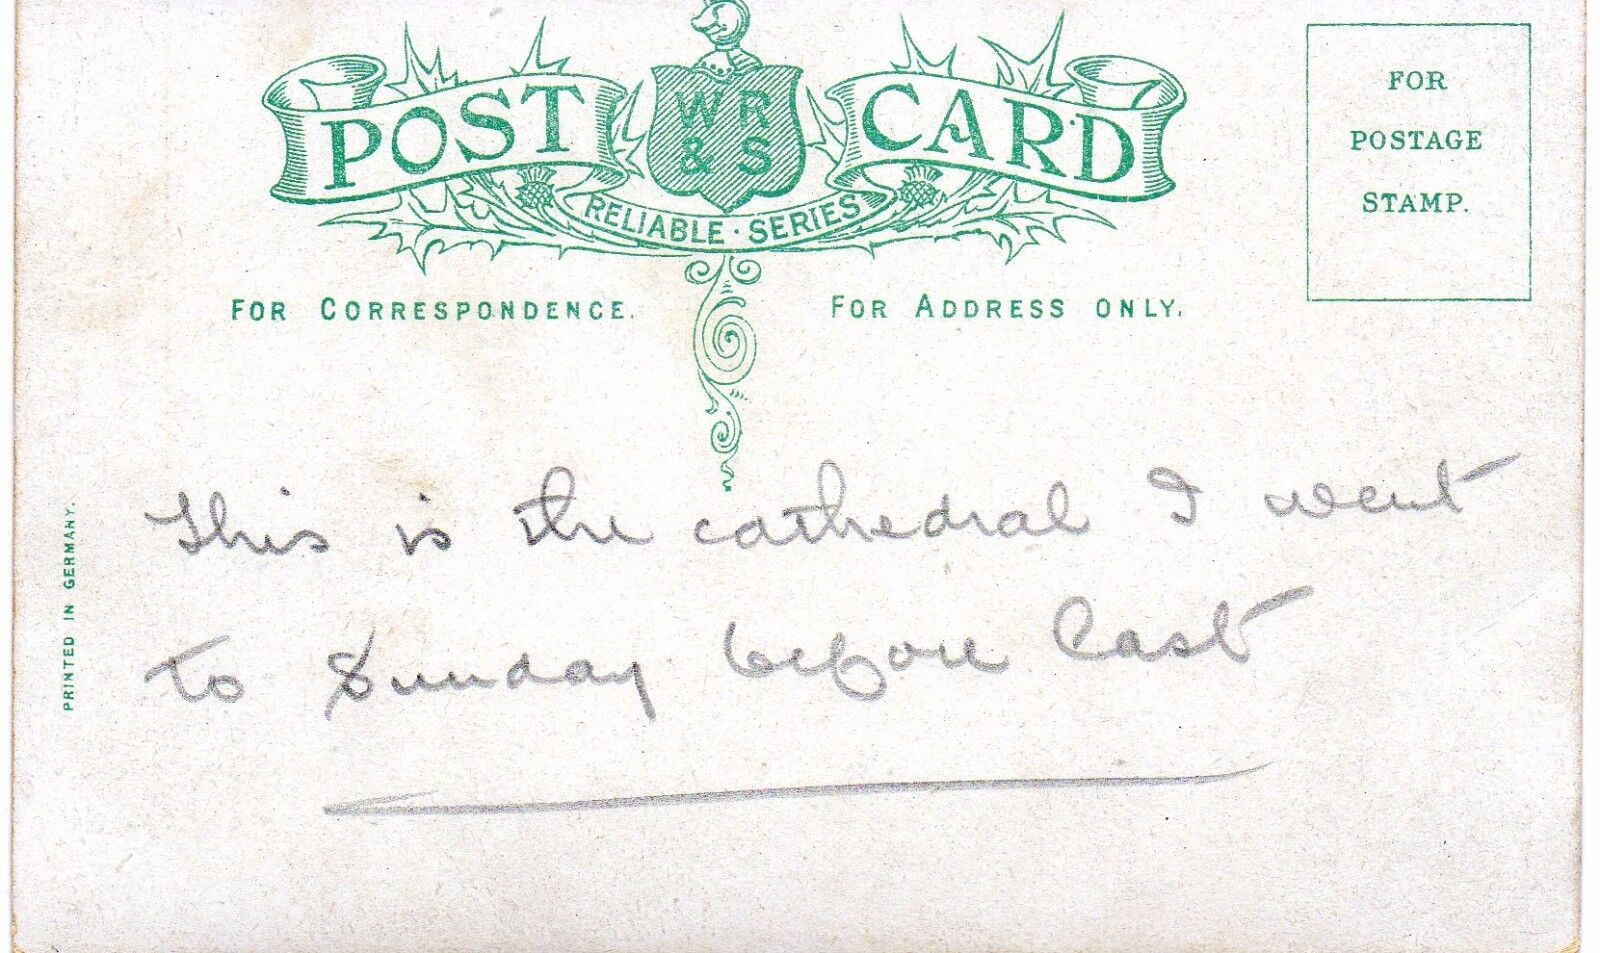 POST CARD
WR
& S
RELIABLE · SERIES
FOR CORRESPONDENCE.
FOR ADDRESS ONLY.
FOR
POSTAGE
STAMP.
PRINTED IN GERMANY.
This is the cathedral I went
to Sunday before last